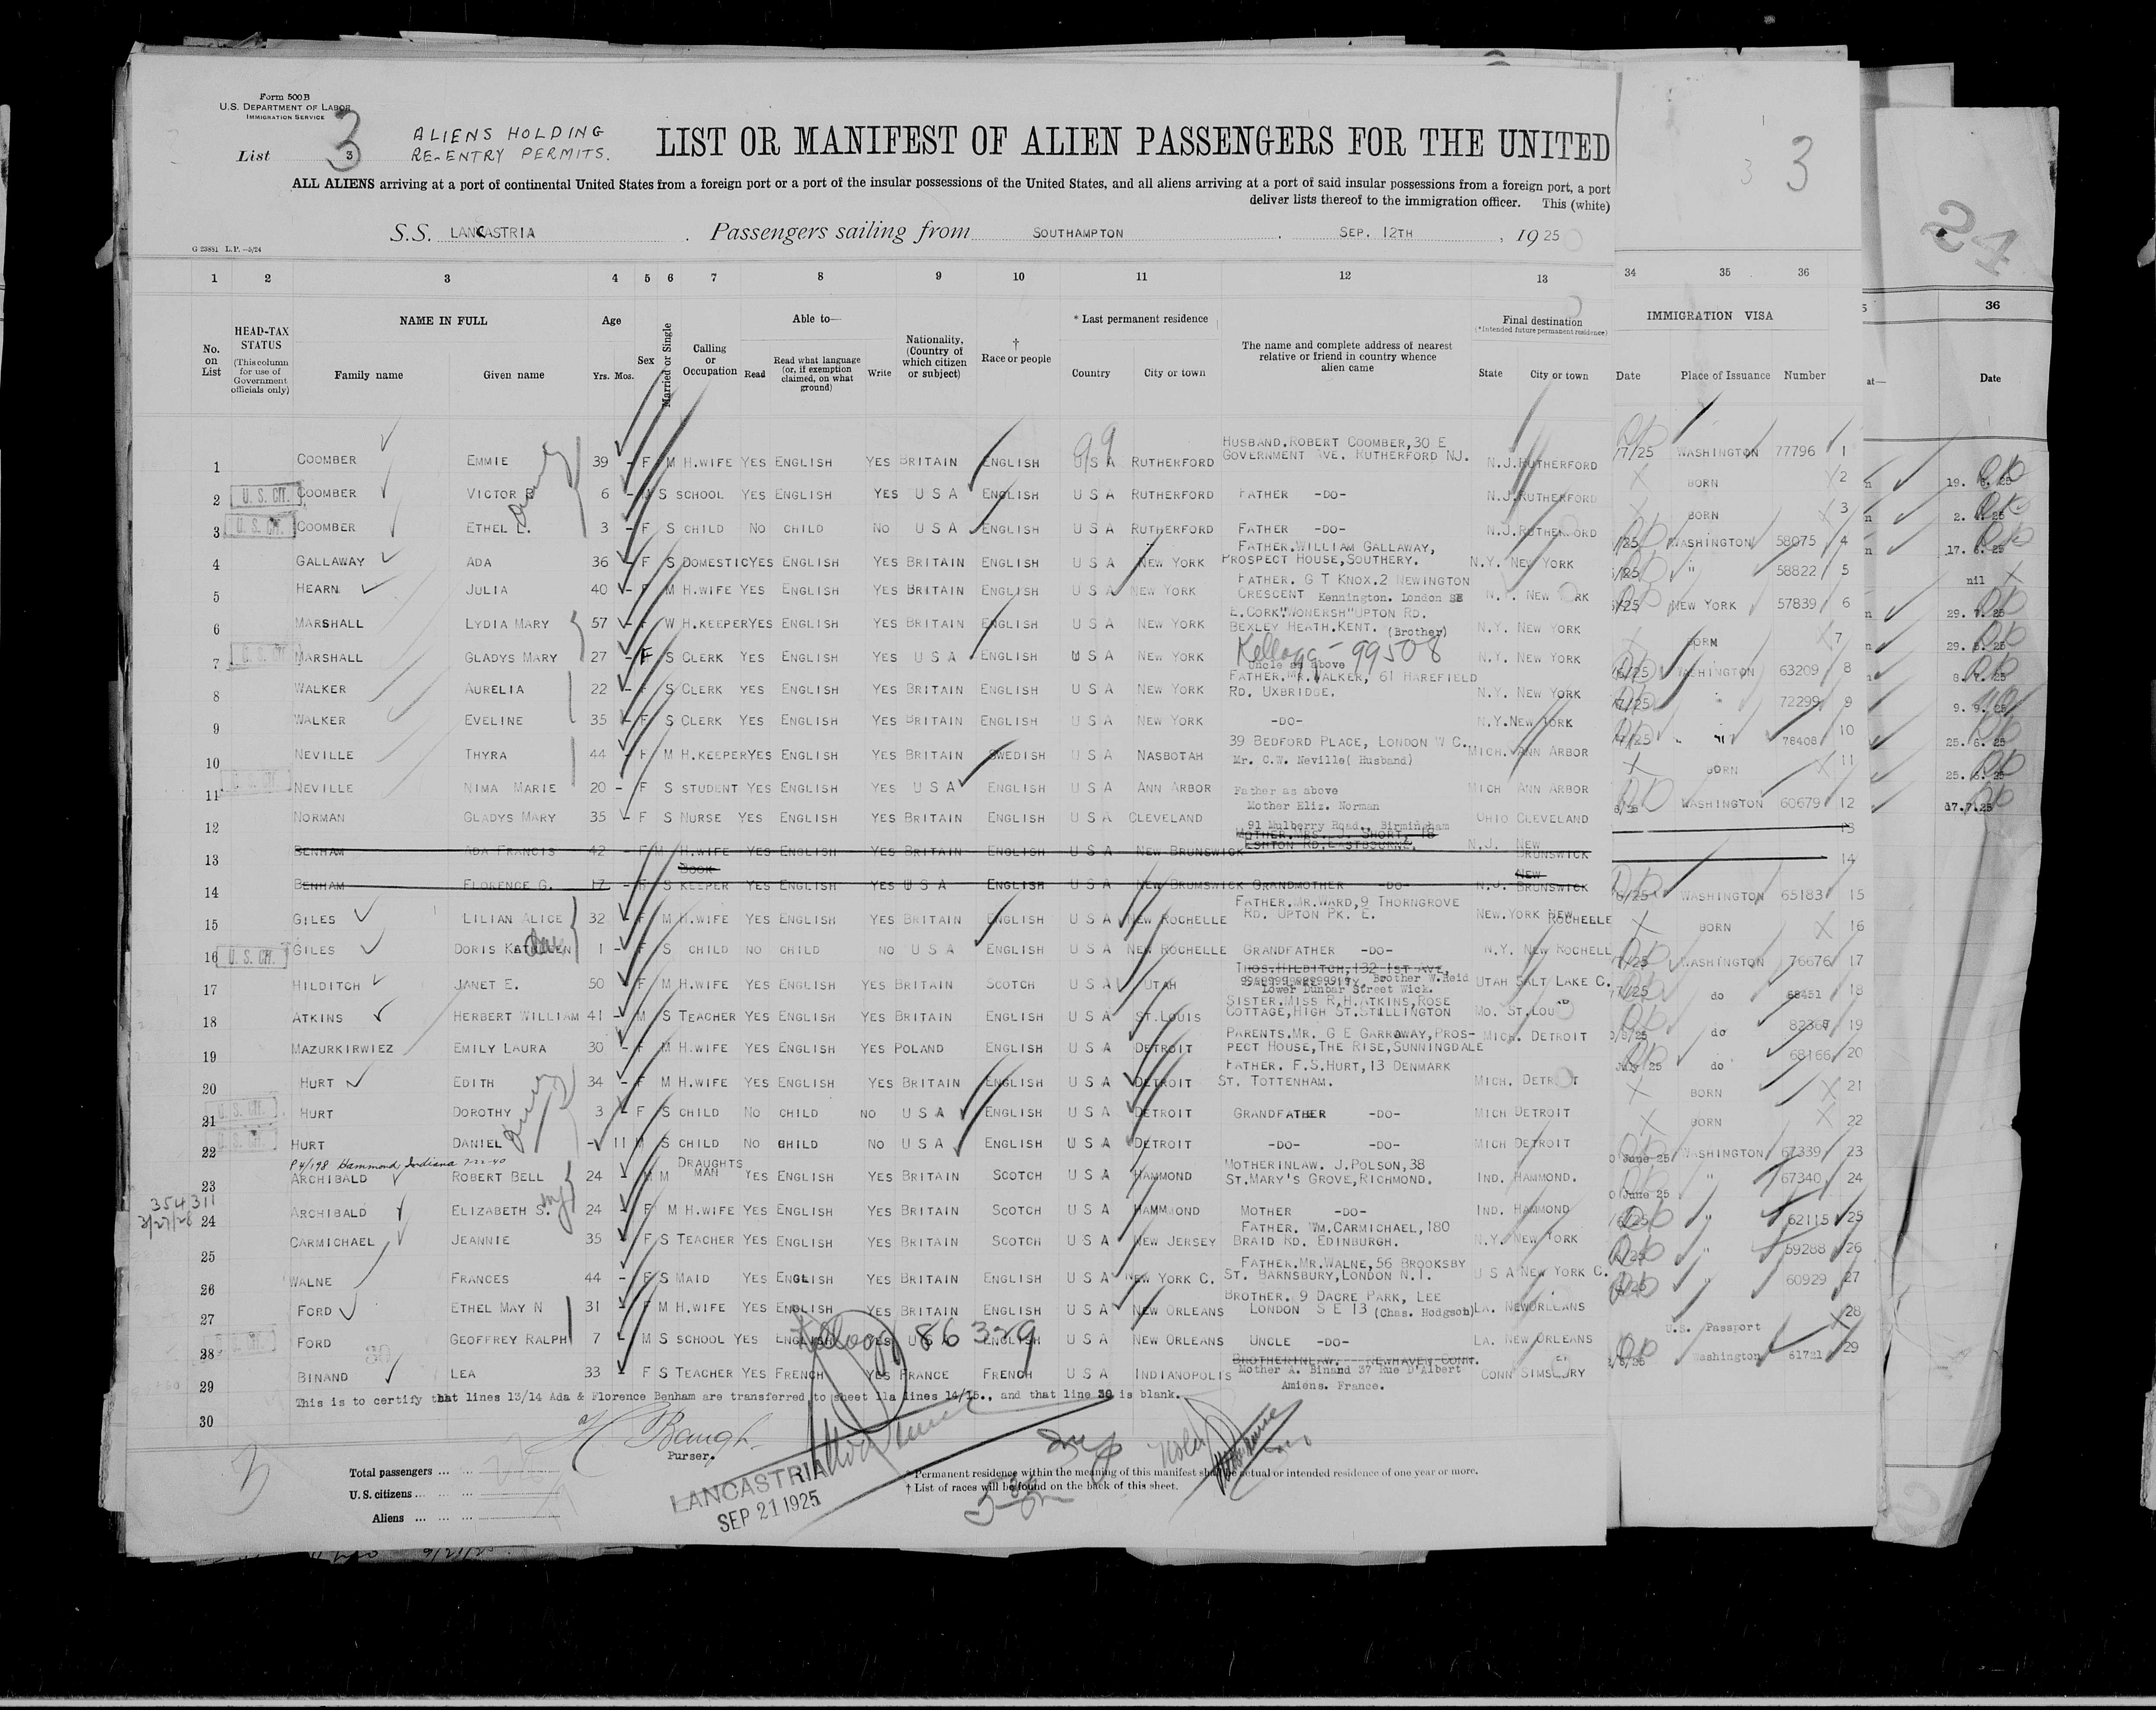 Form 500B
U.S. DEPARTMENT OF LABOR
IMMIGRATION SERVICE
List 3
3
ALIENS HOLDING
RE-ENTRY PERMITS.
LIST OR MANIFEST OF ALIEN PASSENGERS FOR THE UNITED
3 3
24
ALL ALIENS arriving at a port of continental United States from a foreign port or a port of the insular possessions of the United States, and all aliens arriving at a port of said insular possessions from a foreign port, a port
deliver lists thereof to the immigration officer. This (white)
S.S. LANCASTRIA. Passengers sailing from SOUTHAMPTON. SEP. 12TH, 1925
G 23881 L.P.—5/24
1 2 3 4 5 6 7 8 9 10 11 12 13 34 35 36
No. on List
HEAD-TAX STATUS
(This column for use of Government officials only)
NAME IN FULL
Family name
Given name
Age
Yrs. Mos.
Sex
Married or Single
Calling or Occupation
Able to—
Read
Read what language (or, if exemption claimed, on what ground)
Write
Nationality. (Country of which citizen or subject)
† Race or people
* Last permanent residence
Country
City or town
The name and complete address of nearest relative or friend in country whence alien came
Final destination
(*Intended future permanent residence)
State
City or town
IMMIGRATION VISA
Date
Place of Issuance
Number
36
at—
Date
1 COOMBER EMMIE 39 - F M H.WIFE YES ENGLISH YES BRITAIN ENGLISH U S A RUTHERFORD HUSBAND.ROBERT COOMBER,30 E GOVERNMENT AVE. RUTHERFORD NJ. N.J.RUTHERFORD 7/25 WASHINGTON 77796 1
2 U.S. CIT. COOMBER VICTOR 6 - M S SCHOOL YES ENGLISH YES U S A ENGLISH U S A RUTHERFORD FATHER -DO- N.J.RUTHERFORD BORN 2
3 U.S. CIT. COOMBER ETHEL E. 3 - F S CHILD NO CHILD NO U S A ENGLISH U S A RUTHERFORD FATHER -DO- N.J.RUTHERFORD BORN 3
4 GALLAWAY ADA 36 - F S DOMESTIC YES ENGLISH YES BRITAIN ENGLISH U S A NEW YORK FATHER.WILLIAM GALLAWAY, PROSPECT HOUSE,SOUTHERY. N.Y. NEW YORK /25 WASHINGTON 58075 4
5 HEARN JULIA 40 - F M H.WIFE YES ENGLISH YES BRITAIN ENGLISH U S A NEW YORK FATHER. G T KNOX.2 NEWINGTON CRESCENT Kennington. London SE N.Y. NEW YORK /25 " 58822 5
6 MARSHALL LYDIA MARY 57 - F W H.KEEPER YES ENGLISH YES BRITAIN ENGLISH U S A NEW YORK E.CORK"WONERSH"UPTON RD. BEXLEY HEATH.KENT. (Brother) N.Y. NEW YORK /25 NEW YORK 57839 6
7 U.S. CIT. MARSHALL GLADYS MARY 27 - F S CLERK YES ENGLISH YES U S A ENGLISH U S A NEW YORK Kellogg - 99508 Uncle as above N.Y. NEW YORK BORN 7
8 WALKER AURELIA 22 - F S CLERK YES ENGLISH YES BRITAIN ENGLISH U S A NEW YORK FATHER.MR.WALKER, 61 HAREFIELD RD. UXBRIDGE. N.Y. NEW YORK 6/25 WASHINGTON 63209 8
9 WALKER EVELINE 35 - F S CLERK YES ENGLISH YES BRITAIN ENGLISH U S A NEW YORK -DO- N.Y.NEW YORK 7/25 " 72299 9
10 NEVILLE THYRA 44 - F M H.KEEPER YES ENGLISH YES BRITAIN SWEDISH U S A NASBOTAH 39 BEDFORD PLACE, LONDON W C. Mr. C.W. Neville( Husband) MICH. ANN ARBOR 7/25 " 78408 10
11 U.S. CIT. NEVILLE NIMA MARIE 20 - F S STUDENT YES ENGLISH YES U S A ENGLISH U S A ANN ARBOR Father as above MICH ANN ARBOR BORN 11
12 NORMAN GLADYS MARY 35 - F S NURSE YES ENGLISH YES BRITAIN ENGLISH U S A CLEVELAND Mother Eliz. Norman 91 Mulberry Road., Birmingham OHIO CLEVELAND WASHINGTON 60679 12
13 BENHAM ADA FRANCIS 42 - F M H.WIFE YES ENGLISH YES BRITAIN ENGLISH U S A NEW BRUNSWICK MOTHER.MRS. J. SHORT, 18 ESHTON RD.EASTBOURNE. N.J. NEW BRUNSWICK 13
14 BENHAM FLORENCE G. 17 - F S BOOK KEEPER YES ENGLISH YES U S A ENGLISH U S A NEW BRUMSWICK GRANDMOTHER -DO- N.J. NEW BRUNSWICK 14
15 GILES LILIAN ALICE 32 - F M H.WIFE YES ENGLISH YES BRITAIN ENGLISH U S A NEW ROCHELLE FATHER.MR.WARD,9 THORNGROVE RD. UPTON PK. E. NEW.YORK NEW ROCHELLE 6/25 WASHINGTON 65183 15
16 U.S. CIT. GILES DORIS KATHLEEN 1 - F S CHILD NO CHILD NO U S A ENGLISH U S A NEW ROCHELLE GRANDFATHER -DO- N.Y. NEW ROCHELL BORN 16
17 HILDITCH JANET E. 50 - F M H.WIFE YES ENGLISH YES BRITAIN SCOTCH U S A UTAH THOS.HILDITCH,132 1ST AVE, Brother W.Reid Lower Dunbar Street Wick. UTAH SALT LAKE C. 7/25 WASHINGTON 76676 17
18 ATKINS HERBERT WILLIAM 41 - M S TEACHER YES ENGLISH YES BRITAIN ENGLISH U S A ST.LOUIS SISTER.MISS R.H.ATKINS,ROSE COTTAGE,HIGH ST.STILLINGTON MO. ST.LOU 7/25 do 68451 18
19 MAZURKIRWIEZ EMILY LAURA 30 - F M H.WIFE YES ENGLISH YES POLAND ENGLISH U S A DETROIT PARENTS.MR. G E GARRAWAY,PROS-PECT HOUSE,THE RISE,SUNNINGDALE MICH. DETROIT /8/25 do 82367 19
20 HURT EDITH 34 - F M H.WIFE YES ENGLISH YES BRITAIN ENGLISH U S A DETROIT FATHER. F.S.HURT,13 DENMARK ST. TOTTENHAM. MICH. DETROIT July 25 do 68166 20
21 U.S. CIT. HURT DOROTHY 3 - F S CHILD NO CHILD NO U S A ENGLISH U S A DETROIT GRANDFATHER -DO- MICH DETROIT BORN 21
22 U.S. CIT. HURT DANIEL - 11 M S CHILD NO CHILD NO U S A ENGLISH U S A DETROIT -DO- -DO- MICH DETROIT BORN 22
P4/198 Hammond, Indiana 7-22-40
23 ARCHIBALD ROBERT BELL 24 - M M DRAUGHTS MAN YES ENGLISH YES BRITAIN SCOTCH U S A HAMMOND MOTHERINLAW. J.POLSON,38 ST.MARY'S GROVE,RICHMOND. IND. HAMMOND. June 25 WASHINGTON 67339 23
354311
3/27/28
24 ARCHIBALD ELIZABETH S. 24 - F M H.WIFE YES ENGLISH YES BRITAIN SCOTCH U S A HAMMJOND MOTHER -DO- IND. HAMMOND June 25 " 67340 24
25 CARMICHAEL JEANNIE 35 F S TEACHER YES ENGLISH YES BRITAIN SCOTCH U S A NEW JERSEY FATHER. WM.CARMICHAEL,180 BRAID RD. EDINBURGH. N.Y. NEW YORK 6/25 " 62115 25
26 WALNE FRANCES 44 - F S MAID YES ENGLISH YES BRITAIN ENGLISH U S A NEW YORK C. FATHER.MR.WALNE,56 BROOKSBY ST. BARNSBURY,LONDON N.1. U S A NEW YORK C. /25 " 59288 26
27 FORD ETHEL MAY N 31 - F M H.WIFE YES ENGLISH YES BRITAIN ENGLISH U S A NEW ORLEANS BROTHER. 9 DACRE PARK, LEE LONDON S E 13 (Chas. Hodgson) LA. NEWORLEANS " 60929 27
28 U.S. CIT. FORD GEOFFREY RALPH 7 - M S SCHOOL YES ENGLISH YES U S A ENGLISH U S A NEW ORLEANS UNCLE -DO- LA. NEW ORLEANS U.S. Passport 28
Kellogg 86329
29 BINAND LEA 33 - F S TEACHER YES FRENCH YES FRANCE FRENCH U S A INDIANOPOLIS BROTHERINLAW. NEWHAVEN CONN. Mother A. Binand 37 Rue D'Albert Amiens. France. CONN SIMSBURY /8/25 Washington 61721 29
19. 25
2. 25
17. 6. 25
nil
29. 7. 25
29. 25
8. 7. 25
9. 9. 25
25. 6. 25
25. 6. 25
17.7.25
This is to certify that lines 13/14 Ada & Florence Benham are transferred to sheet 11a lines 14/15., and that line 30 is blank.
30
H Baugh
Purser.
Total passengers ... ...
U.S. citizens ... ... ...
Aliens ... ... ...
LANCASTRIA
SEP 21 1925
* Permanent residence within the meaning of this manifest shall be actual or intended residence of one year or more.
† List of races will be found on the back of this sheet.